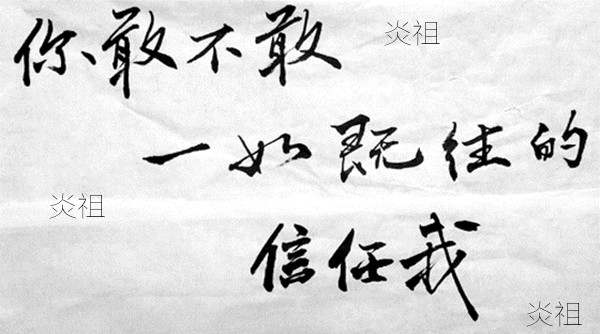 你敢不敢
炎祖
一如既往的
炎祖
信任我
炎祖